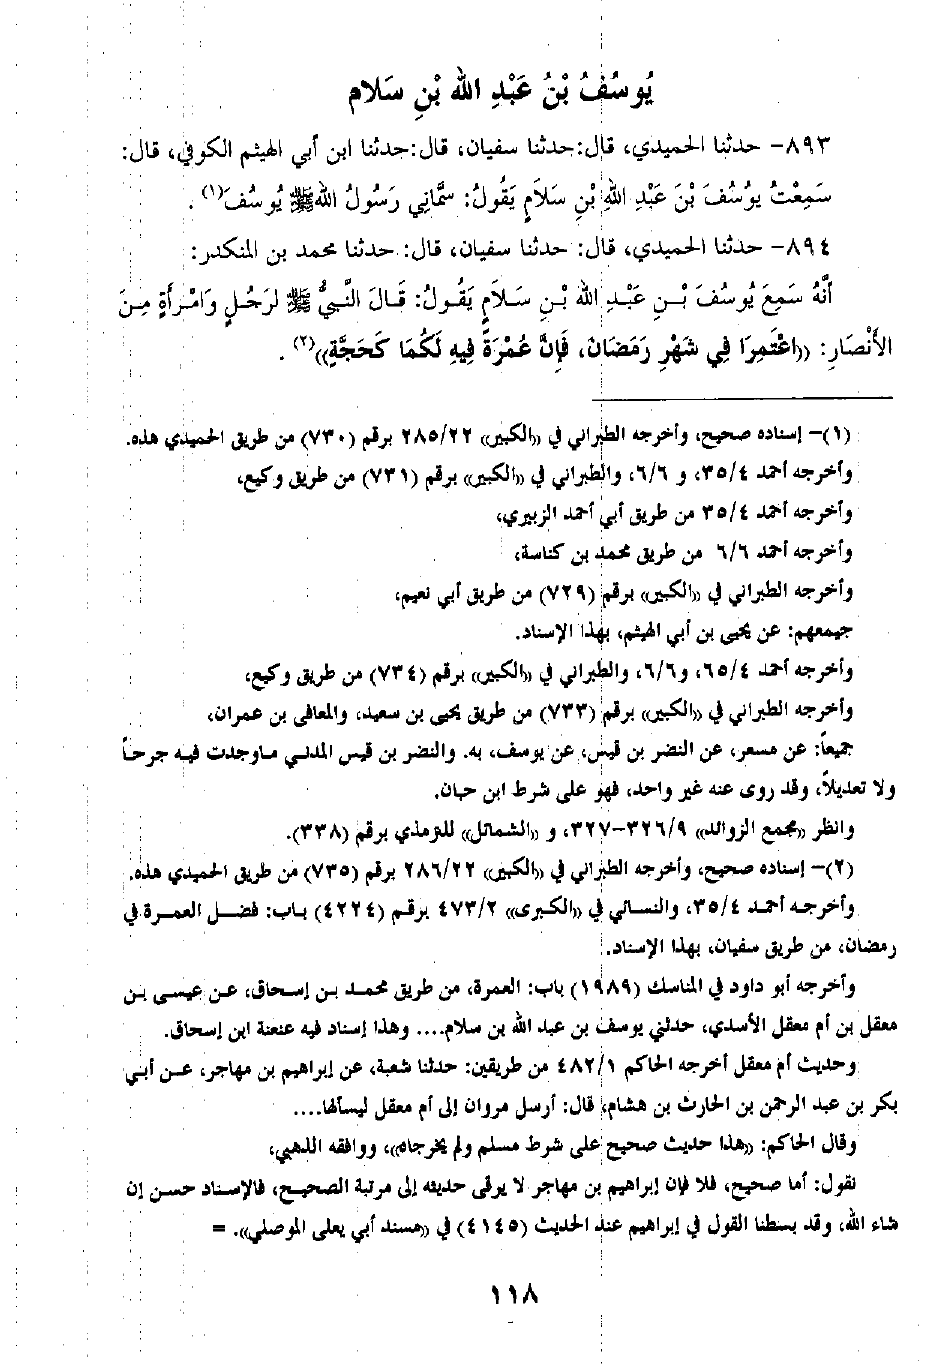 يُوسُفُ بْنُ عَبْدِ اللهِ بْنِ سَلام
٨٩٣- حدثنا الحميدي، قال:حدثنا سفيان، قال:حدثنا ابن أبي الهيثم الكوفي، قال:
سَمِعْتُ يُوسُفَ بْنَ عَبْدِ اللهِ بْنِ سَلاَمٍ يَقُولُ: سَمَّانِي رَسُولُ اللهِ ﷺ يُوسُفَ(١) .
٨٩٤- حدثنا الحميدي، قال: حدثنا سفيان، قال: حدثنا محمد بن المنكدر:
أَنَّهُ سَمِعَ يُوسُفَ بْنِ عَبْدِ اللهِ بْنِ سَلاَمٍ يَقُولُ: قَالَ النَّبِيُّ ﷺ لرَجُلٍ وَامْرأَةٍ مِنَ
الأَنْصَارِ: ((اعْتَمِرَا فِي شَهْرِ رَمَضَانَ، فَإِنَّ عُمْرَةً فِيهِ لَكُمَا كَحَجَّةٍ))(٢) .
(١)- إسناده صحيح، وأخرجه الطبراني في ((الكبير)) ٢٨٥/٢٢ برقم (٧٣٠) من طريق الحميدي هذه.
وأخرجه أحمد ٣٥/٤، و ٦/٦، والطبراني في ((الكبير)) برقم (٧٣١) من طريق وكيع،
وأخرجه أحمد ٣٥/٤ من طريق أبي أحمد الزبيري،
وأخرجه أحمد ٦/٦ من طريق محمد بن كناسة،
وأخرجه الطبراني في ((الكبير)) برقم (٧٢٩) من طريق أبي نعيم،
جميعهم: عن يحيى بن أبي الهيثم، بهذا الإسناد.
وأخرجه أحمد ٦٥/٤، و٦/٦، والطبراني في ((الكبير)) برقم (٧٣٤) من طريق وكيع،
وأخرجه الطبراني في ((الكبير)) برقم (٧٣٣) من طريق يحيى بن سعيد، والمعافى بن عمران،
جميعاً: عن مسعر، عن النضر بن قيس، عن يوسف، به. والنضر بن قيس المدني ماوجدت فيه جرحاً
ولا تعديلاً، وقد روى عنه غير واحد، فهو على شرط ابن حبان.
وانظر ((مجمع الزوائد)) ٣٢٦/٩-٣٢٧، و ((الشمائل)) للترمذي برقم (٣٣٨).
(٢)- إسناده صحيح، وأخرجه الطبراني في ((الكبير)) ٢٨٦/٢٢ برقم (٧٣٥) من طريق الحميدي هذه.
وأخرجه أحمد ٣٥/٤، والنسائي في ((الكبرى)) ٤٧٣/٢ برقم (٤٢٢٤) باب: فضل العمرة في
رمضان، من طريق سفيان، بهذا الإسناد.
وأخرجه أبو داود في المناسك (١٩٨٩) باب: العمرة، من طريق محمد بن إسحاق، عن عيسى بن
معقل بن أم معقل الأسدي، حدثني يوسف بن عبد الله بن سلام.... وهذا إسناد فيه عنعنة ابن إسحاق.
وحديث أم معقل أخرجه الحاكم ٤٨٢/١ من طريقين: حدثنا شعبة، عن إبراهيم بن مهاجر، عن أبي
بكر بن عبد الرحمن بن الحارث بن هشام، قال: أرسل مروان إلى أم معقل ليسألها....
وقال الحاكم: ((هذا حديث صحيح على شرط مسلم ولم يخرجاه))، ووافقه الذهبي،
نقول: أما صحيح، فلا فإن إبراهيم بن مهاجر لا يرقى حديثه إلى مرتبة الصحيح، فالإسناد حسن إن
شاء الله، وقد بسطنا القول في إبراهيم عند الحديث (٤١٤٥) في ((مسند أبي يعلى الموصلي)). =
١١٨